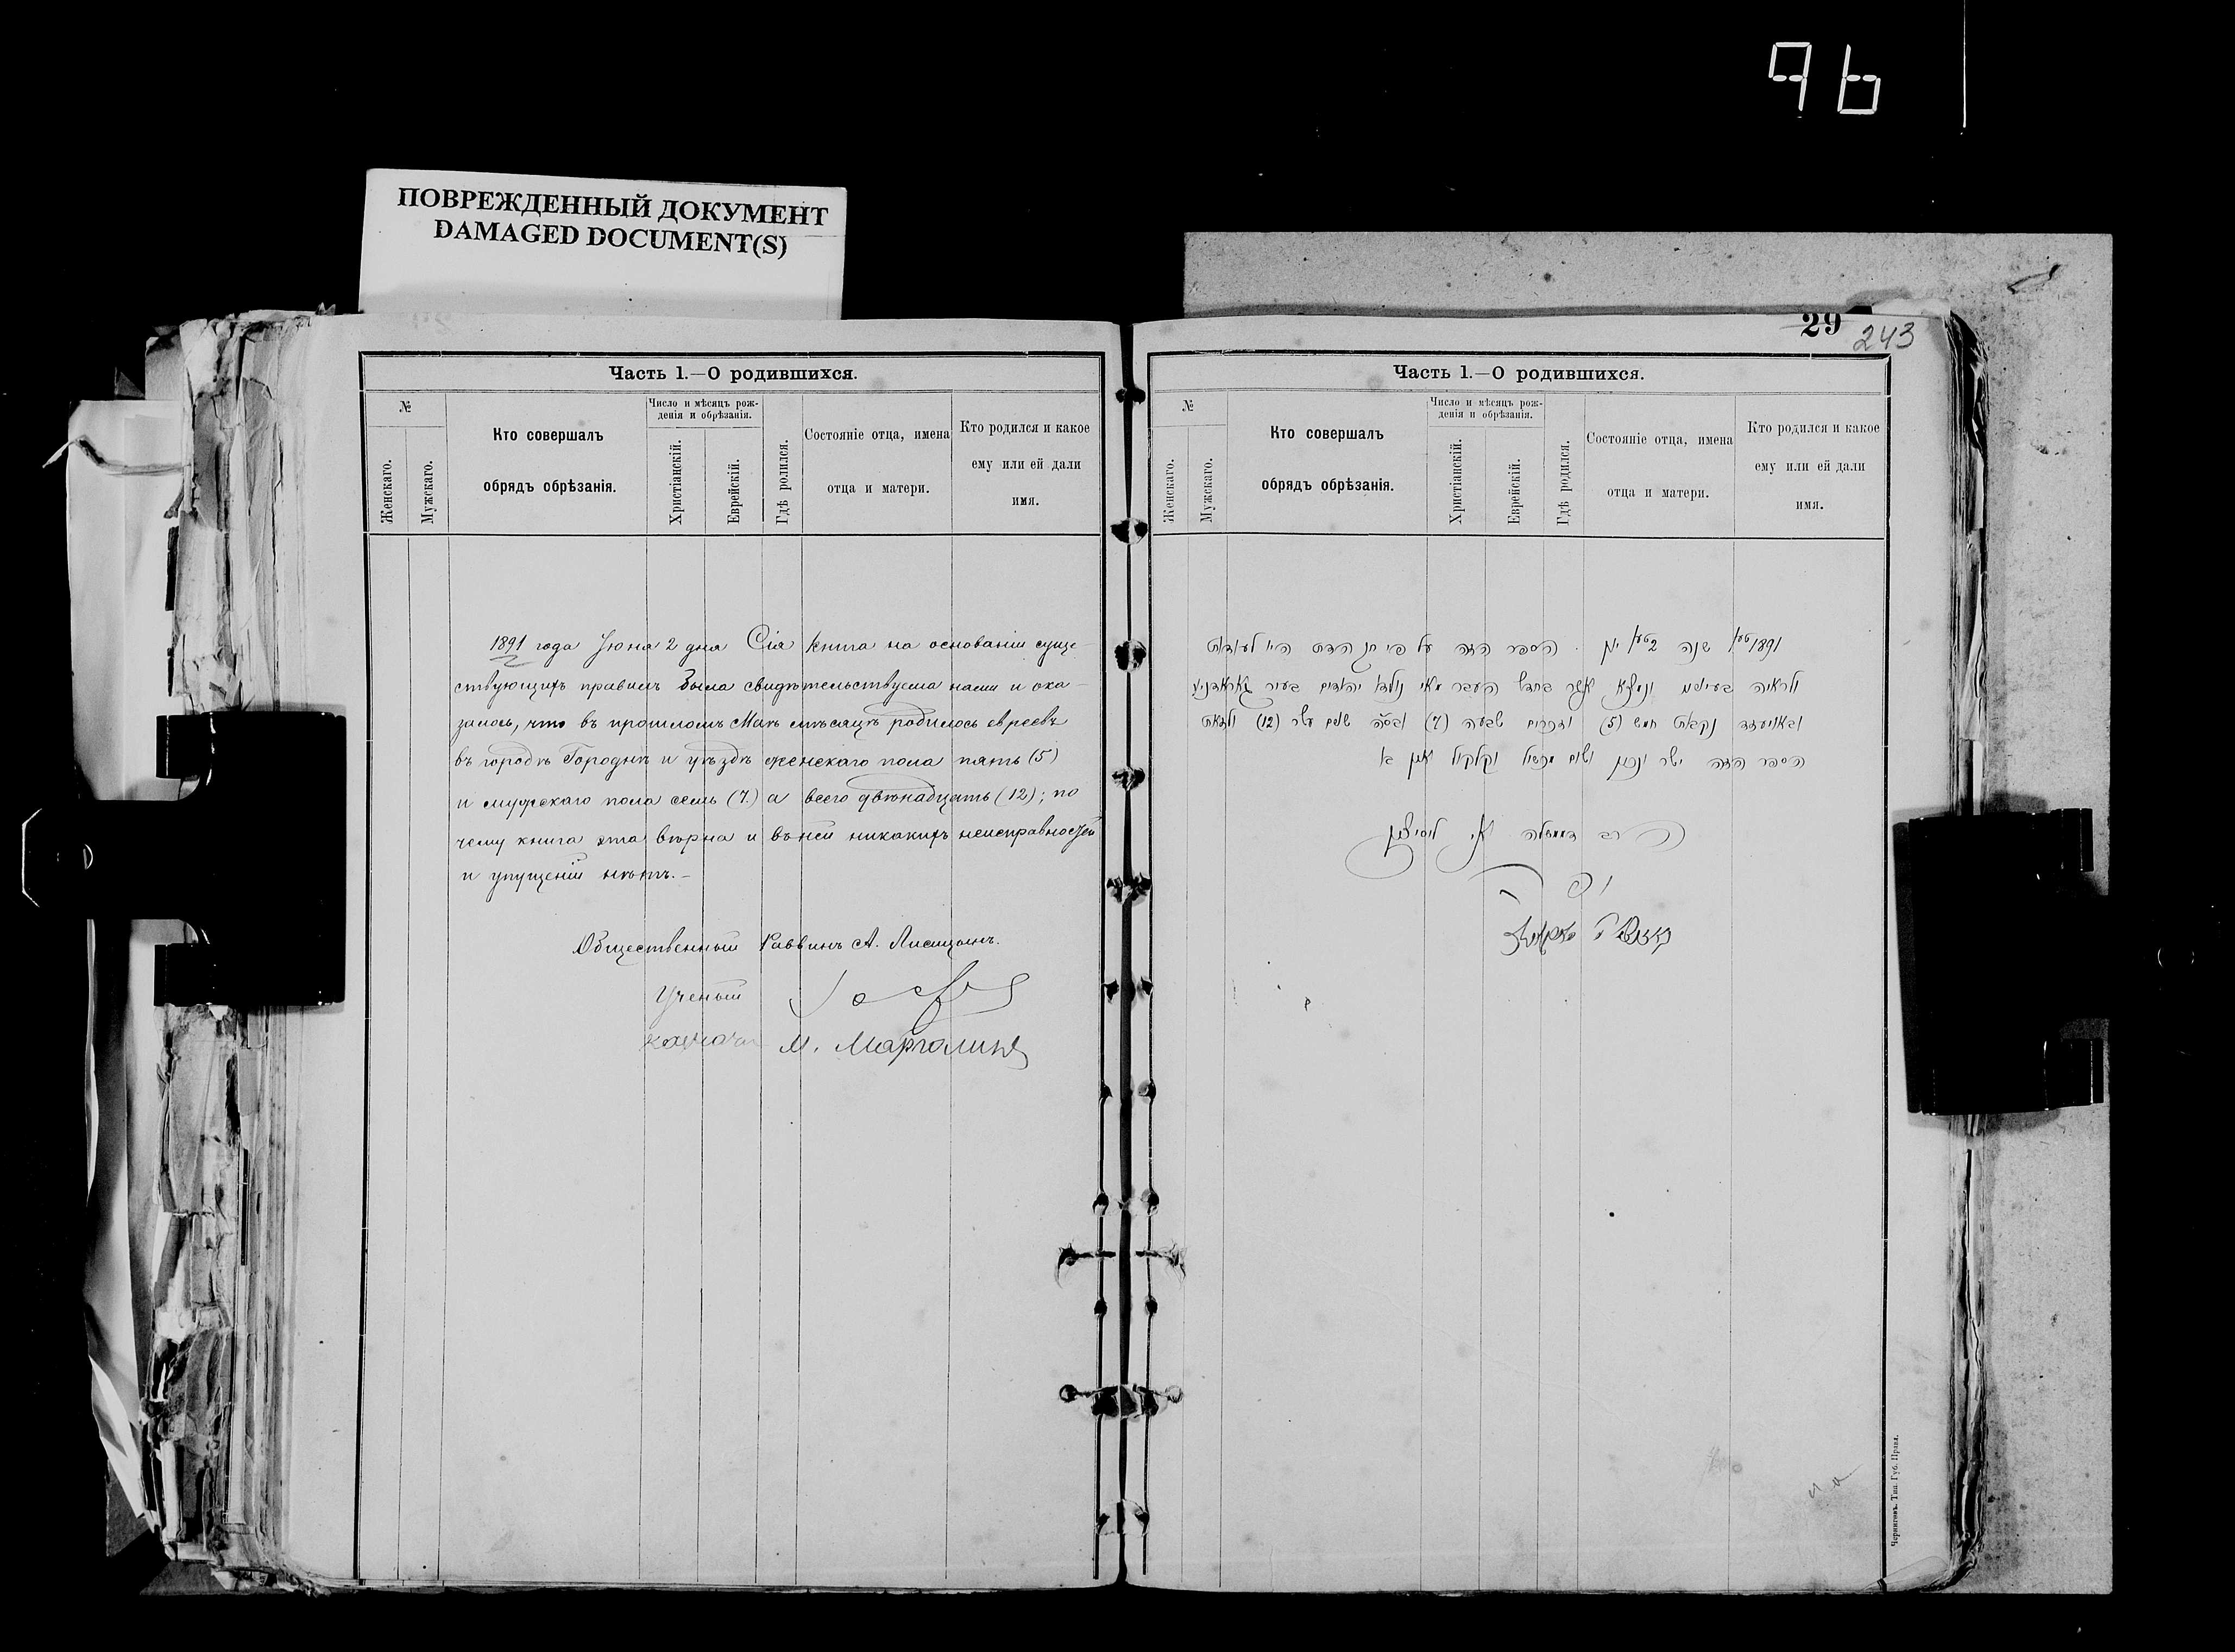 96
ПОВРЕЖДЕННЫЙ ДОКУМЕНТ
DAMAGED DOCUMENT(S)
Часть 1.—О родившихся.
№
Женскаго.
Мужскаго.
Кто совершалъ
обрядъ обрѣзанія.
Число и мѣсяцъ рож-
денія и обрѣзанія.
Христіанскій.
Еврейскій.
Гдѣ родился.
Состояніе отца, имена
отца и матери.
Кто родился и какое
ему или ей дали
имя.
1891 года Іюня 2 дня Сія книга на основаніи суще-
ствующихъ правилъ была свидѣтельствуема нами и ока-
залось, что въ прошломъ Маѣ мѣсяцѣ родилось евреевъ
въ городѣ Городнѣ и уѣздѣ женскаго пола пять (5)
и мужскаго пола семь (7.) а всего двѣнадцать (12); по
чему книга эта вѣрна и въ ней никакихъ неисправностей
и упущеній нѣтъ.—
Общественный Раввинъ А. Лисицынъ.
Ученый
М. Марголинъ
29
243
Часть 1.—О родившихся.
№
Женскаго.
Мужскаго.
Кто совершалъ
обрядъ обрѣзанія.
Число и мѣсяцъ рож-
денія и обрѣзанія.
Христіанскій.
Еврейскій.
Гдѣ родился.
Состояніе отца, имена
отца и матери.
Кто родился и какое
ему или ей дали
имя.
1891 שנה 2 יוני הספר הזה על פי חק הדת היו לעדות
ולראיה ונמצא אשר בחדש העבר מאי נולדו יהודים בעיר גאראדניא
נקבות חמש (5) וזכרים שבעה (7) ובס"ה שנים עשר (12)
הספר הזה ישר ונכון
הרב דממשלה ליסיצין
Черниговъ. Тип. Губ. Правл.